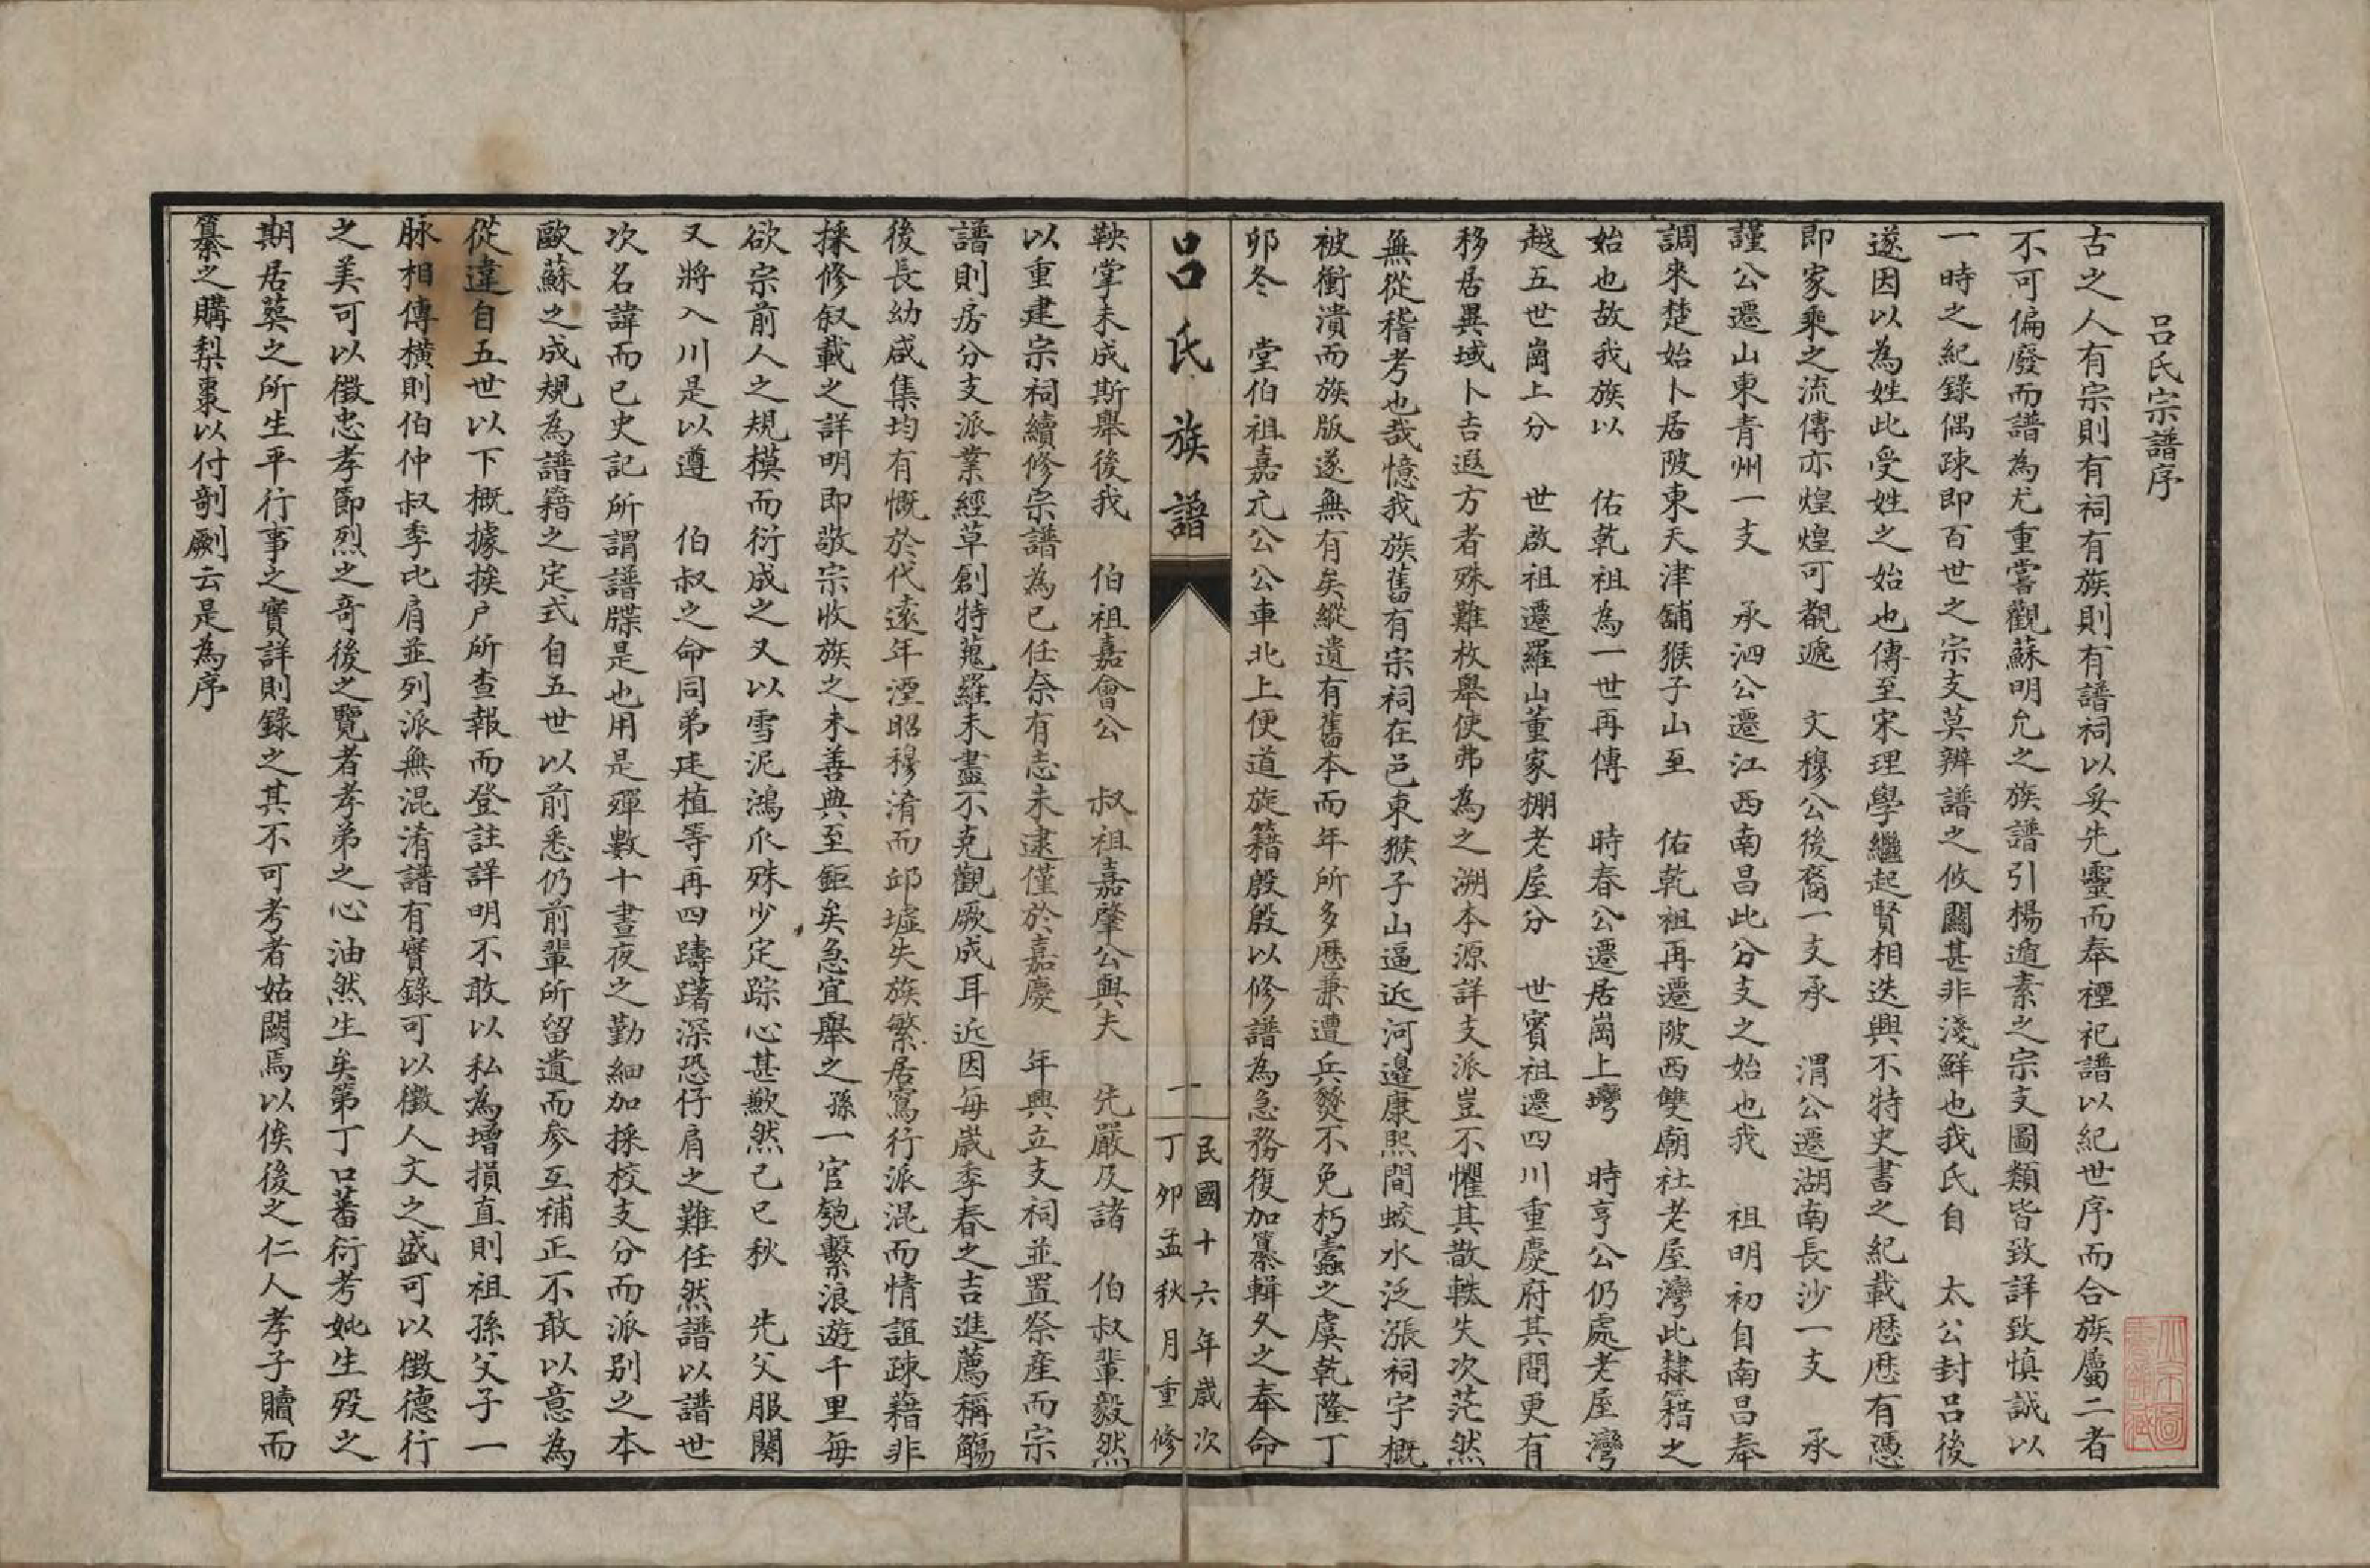 呂氏宗譜序
古之人有宗則有祠有族則有譜祠以妥先靈而奉禋祀譜以紀世序而合族屬二者
不可偏廢而譜為尤重嘗觀蘇明允之族譜引楊遁素之宗支圖類皆致詳致慎誠以
一時之紀錄偶疎即百世之宗支莫辨譜之攸關甚非淺鮮也我氏自 太公封呂後
遂因以為姓此受姓之始也傳至宋理學繼起賢相迭興不特史書之紀載歷歷有憑
即家乘之流傳亦煌煌可覩遞 文穆公後裔一支承 渭公遷湖南長沙一支 承
謹公遷山東青州一支 承泗公遷江西南昌此分支之始也我 祖明初自南昌奉
調來楚始卜居陂東天津舖猴子山至 佑乾祖再遷陂西雙廟社老屋灣此隸籍之
始也故我族以 佑乾祖為一世再傳 時春公遷居崗上灣 時亨公仍處老屋灣
越五世崗上分 世啟祖遷羅山董家棚老屋分 世賓祖遷四川重慶府其間更有
移居異域卜吉遐方者殊難枚舉使弗為之溯本源詳支派豈不懼其散軼失次茫然
無從稽考也哉憶我族舊有宗祠在邑東猴子山逼近河邊康熙間蛟水泛漲祠宇概
被衝潰而族版遂無有矣縱遺有舊本而年所多歷兼遭兵燹不免朽蠹之虞乾隆丁
卯冬 堂伯祖嘉元公公車北上便道旋籍殷殷以修譜為急務復加纂輯久之奉命
呂氏族譜
一
民國十六年歲次
丁卯孟秋月重修
鞅掌未成斯舉後我 伯祖嘉會公 叔祖嘉肇公與夫 先嚴及諸 伯叔輩毅然
以重建宗祠續修宗譜為已任奈有志未逮僅於嘉慶 年興立支祠並置祭產而宗
譜則房分支派業經草創特蒐羅未盡不克觀厥成耳近因每歲季春之吉進薦稱觴
後長幼咸集均有慨於代遠年湮昭穆淆而邱墟失族繁居窵行派混而情誼疎藉非
採修叙載之詳明即敬宗收族之未善典至鉅矣急宜舉之孫一官匏繫浪遊千里每
欲宗前人之規模而衍成之又以雪泥鴻爪殊少定踪心甚歉然己巳秋 先父服闋
又將入川是以遵 伯叔之命同弟廷植等再四躊躇深恐仔肩之難任然譜以譜世
次名諱而已史記所謂譜牒是也用是殫數十晝夜之勤細加採校支分而派別之本
歐蘇之成規為譜籍之定式自五世以前悉仍前輩所留遺而參互補正不敢以意為
從違自五世以下概據挨户所查報而登註詳明不敢以私為增損直則祖孫父子一
脉相傳橫則伯仲叔季比肩並列派無混淆譜有實錄可以徵人文之盛可以徵德行
之美可以徵忠孝節烈之奇後之覽者孝弟之心油然生矣第丁口蕃衍考妣生歿之
期居葬之所生平行事之實詳則錄之其不可考者姑闕焉以俟後之仁人孝子贖而
纂之購梨棗以付剞劂云是為序